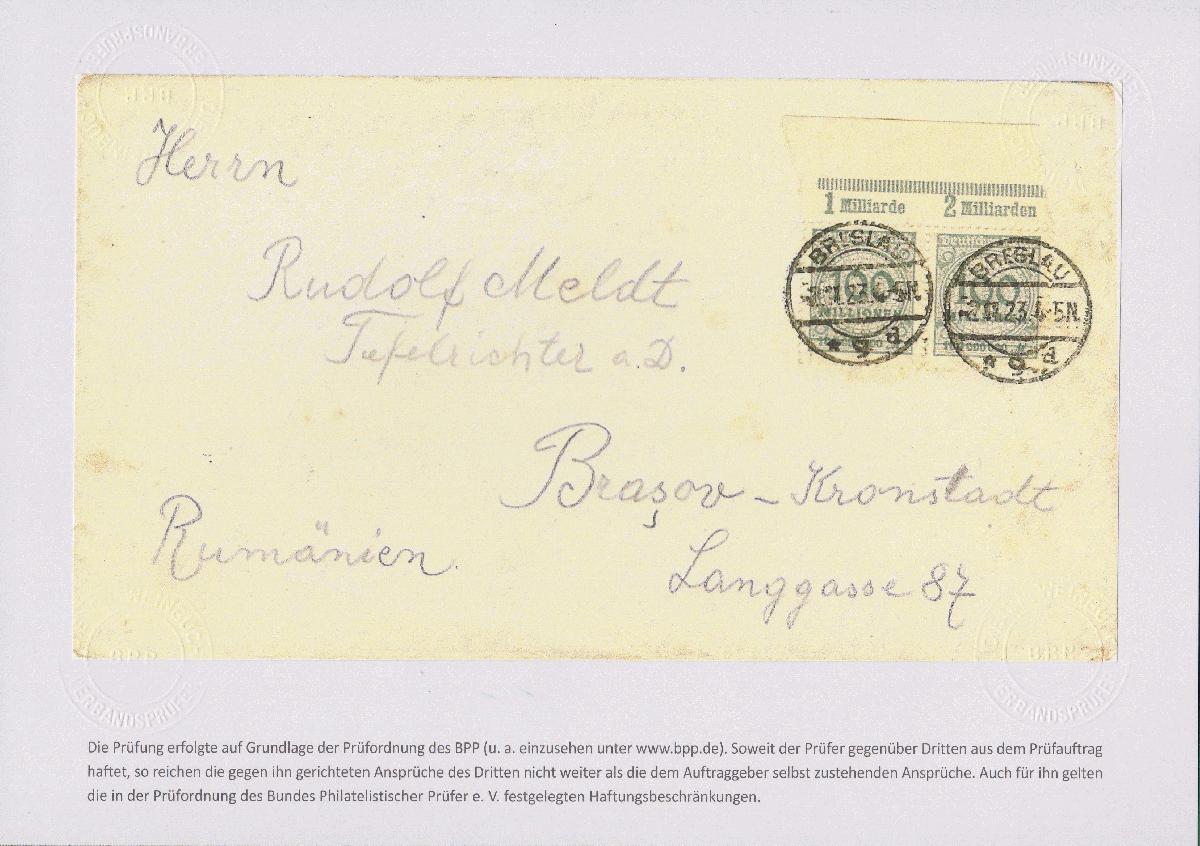 Herrn
Rudolf Meldt
Tafelrichter a. D.
Brașov – Kronstadt
Rumänien.
Langgasse 87
1 Milliarde 2 Milliarden
BRESLAU
23.4-5N.
* 9 d
100
MILLIONEN
Deutsches
BRESLAU
23.4-5N.
* 9 d
100
BPP
VERBANDSPRÜFER
BPP
VERBANDSPRÜFER
WEINBUCH
BPP
VERBANDSPRÜFER
WEINBUCH
BPP
VERBANDSPRÜFER
Die Prüfung erfolgte auf Grundlage der Prüfordnung des BPP (u. a. einzusehen unter www.bpp.de). Soweit der Prüfer gegenüber Dritten aus dem Prüfauftrag
haftet, so reichen die gegen ihn gerichteten Ansprüche des Dritten nicht weiter als die dem Auftraggeber selbst zustehenden Ansprüche. Auch für ihn gelten
die in der Prüfordnung des Bundes Philatelistischer Prüfer e. V. festgelegten Haftungsbeschränkungen.